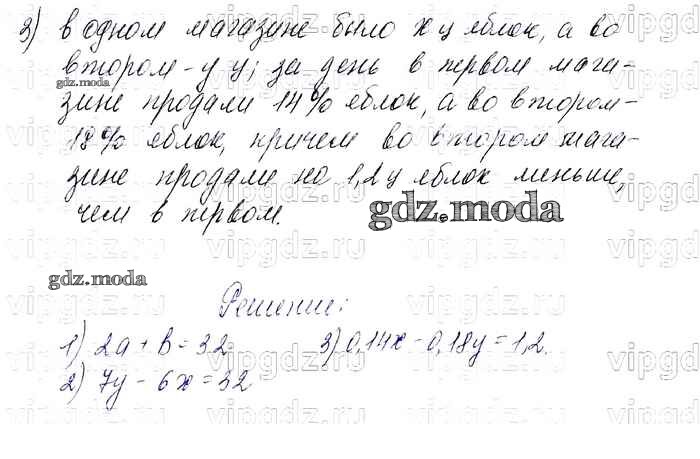 3) в одном магазине было х ц яблок, а во
втором - у ц; за день в первом мага-
gdz.moda
зине продали 14% яблок, а во втором -
18% яблок, причем во втором мага-
зине продали на 1,2 ц яблок меньше,
чем в первом.
gdz.moda
gdz.moda
Решение:
1) 2a + b = 32 3) 0,14x - 0,18y = 1,2.
2) 7y - 6x = 32